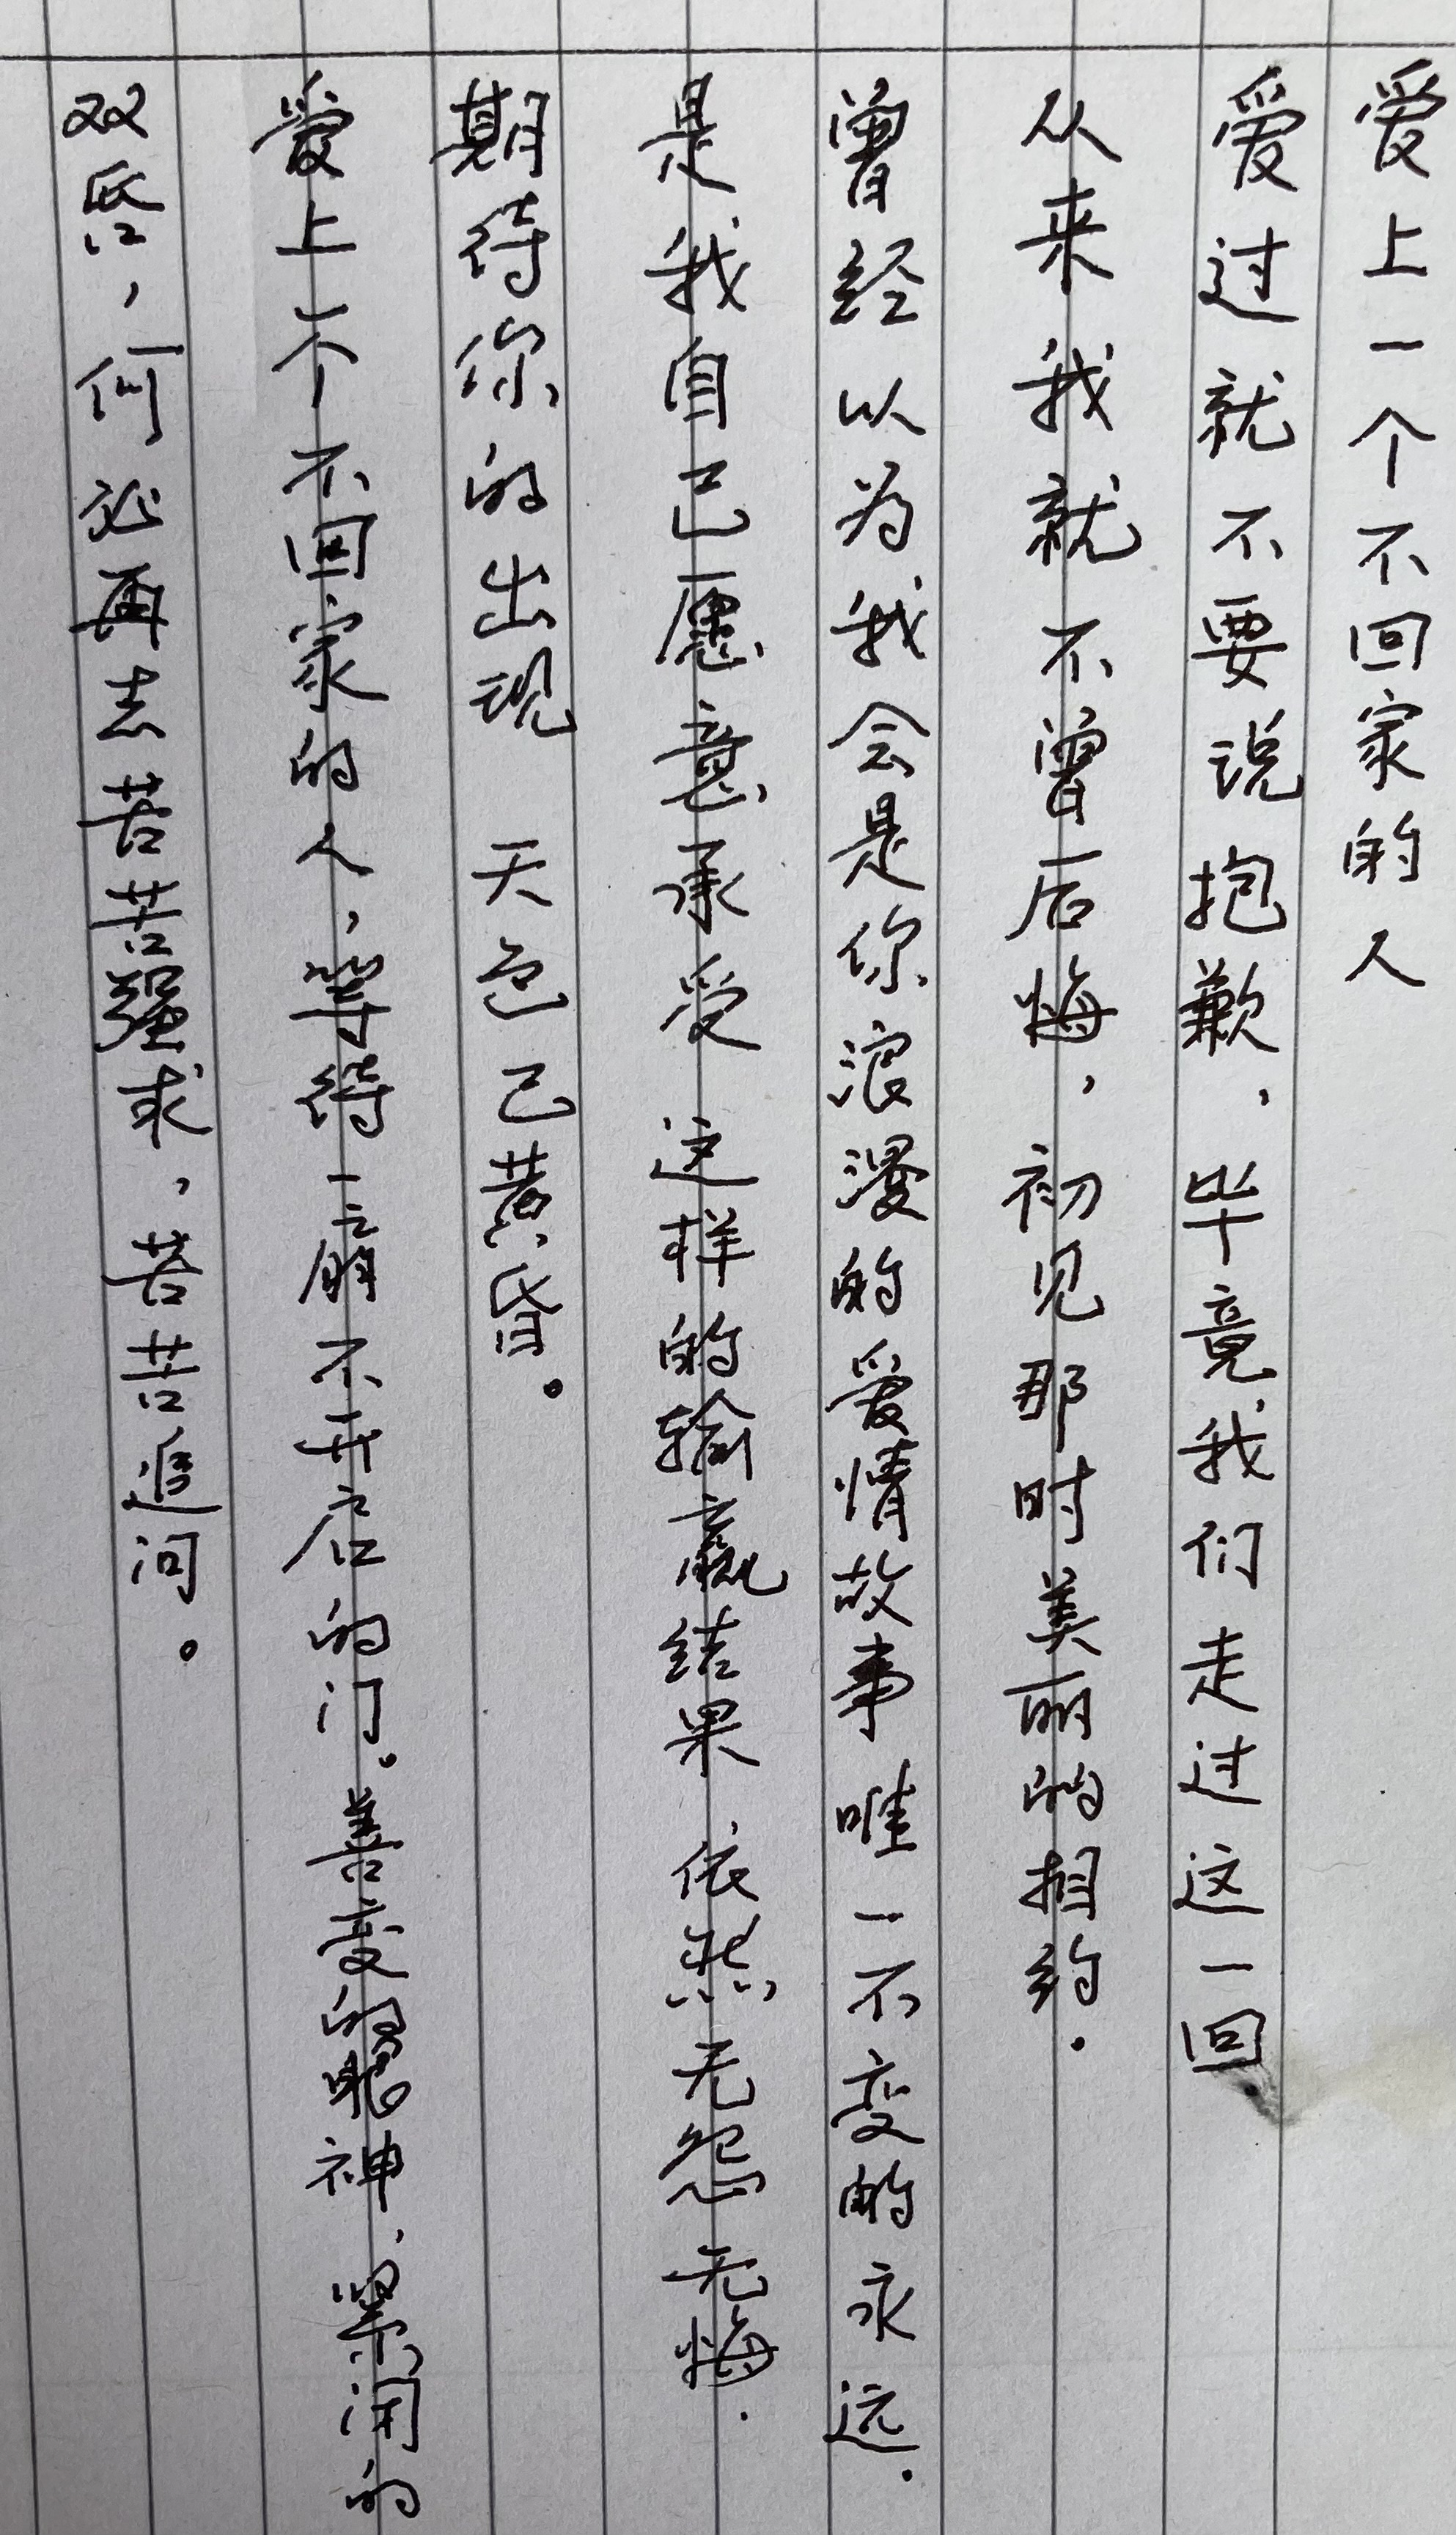 爱上一个不回家的人
爱过就不要说抱歉，毕竟我们走过这一回
从来我就不曾后悔，初见那时美丽的相约．
曾经以为我会是你浪漫的爱情故事唯一不变的永远．
是我自己愿意承受 这样的输赢结果 依然无怨无悔．
期待你的出现 天色已黄昏。
爱上一个不回家的人，等待一扇不开启的门。善变的眼神，紧闭的
双唇，何必再去苦苦强求，苦苦追问。